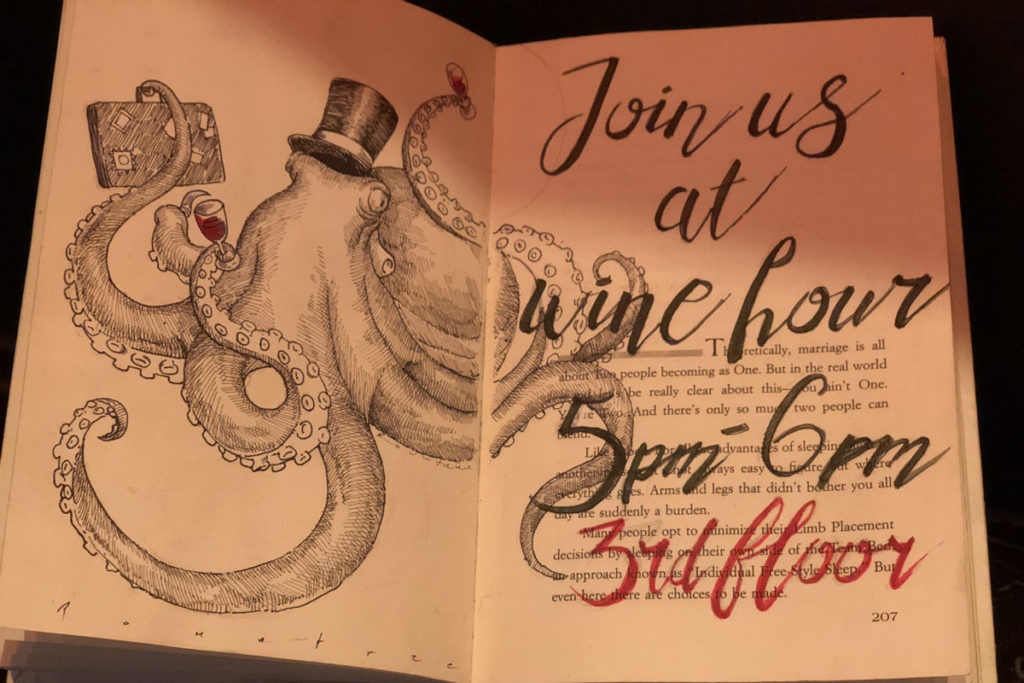 Join us
at
wine hour
5pm-6pm
3rd floor
Theoretically, marriage is all
about Two people becoming as One. But in the real world
be really clear about this—you ain't One.
You're Two. And there's only so much two people can
blend.
Like advantages of sleeping
another not always easy to figure out where
everything goes. Arms and legs that didn't bother you all
day are suddenly a burden.
Many people opt to minimize their Limb Placement
decisions by sleeping on their own side of the Team Bed,
an approach known as "Individual Free-Style Sleep." But
even here there are choices to be made.
207